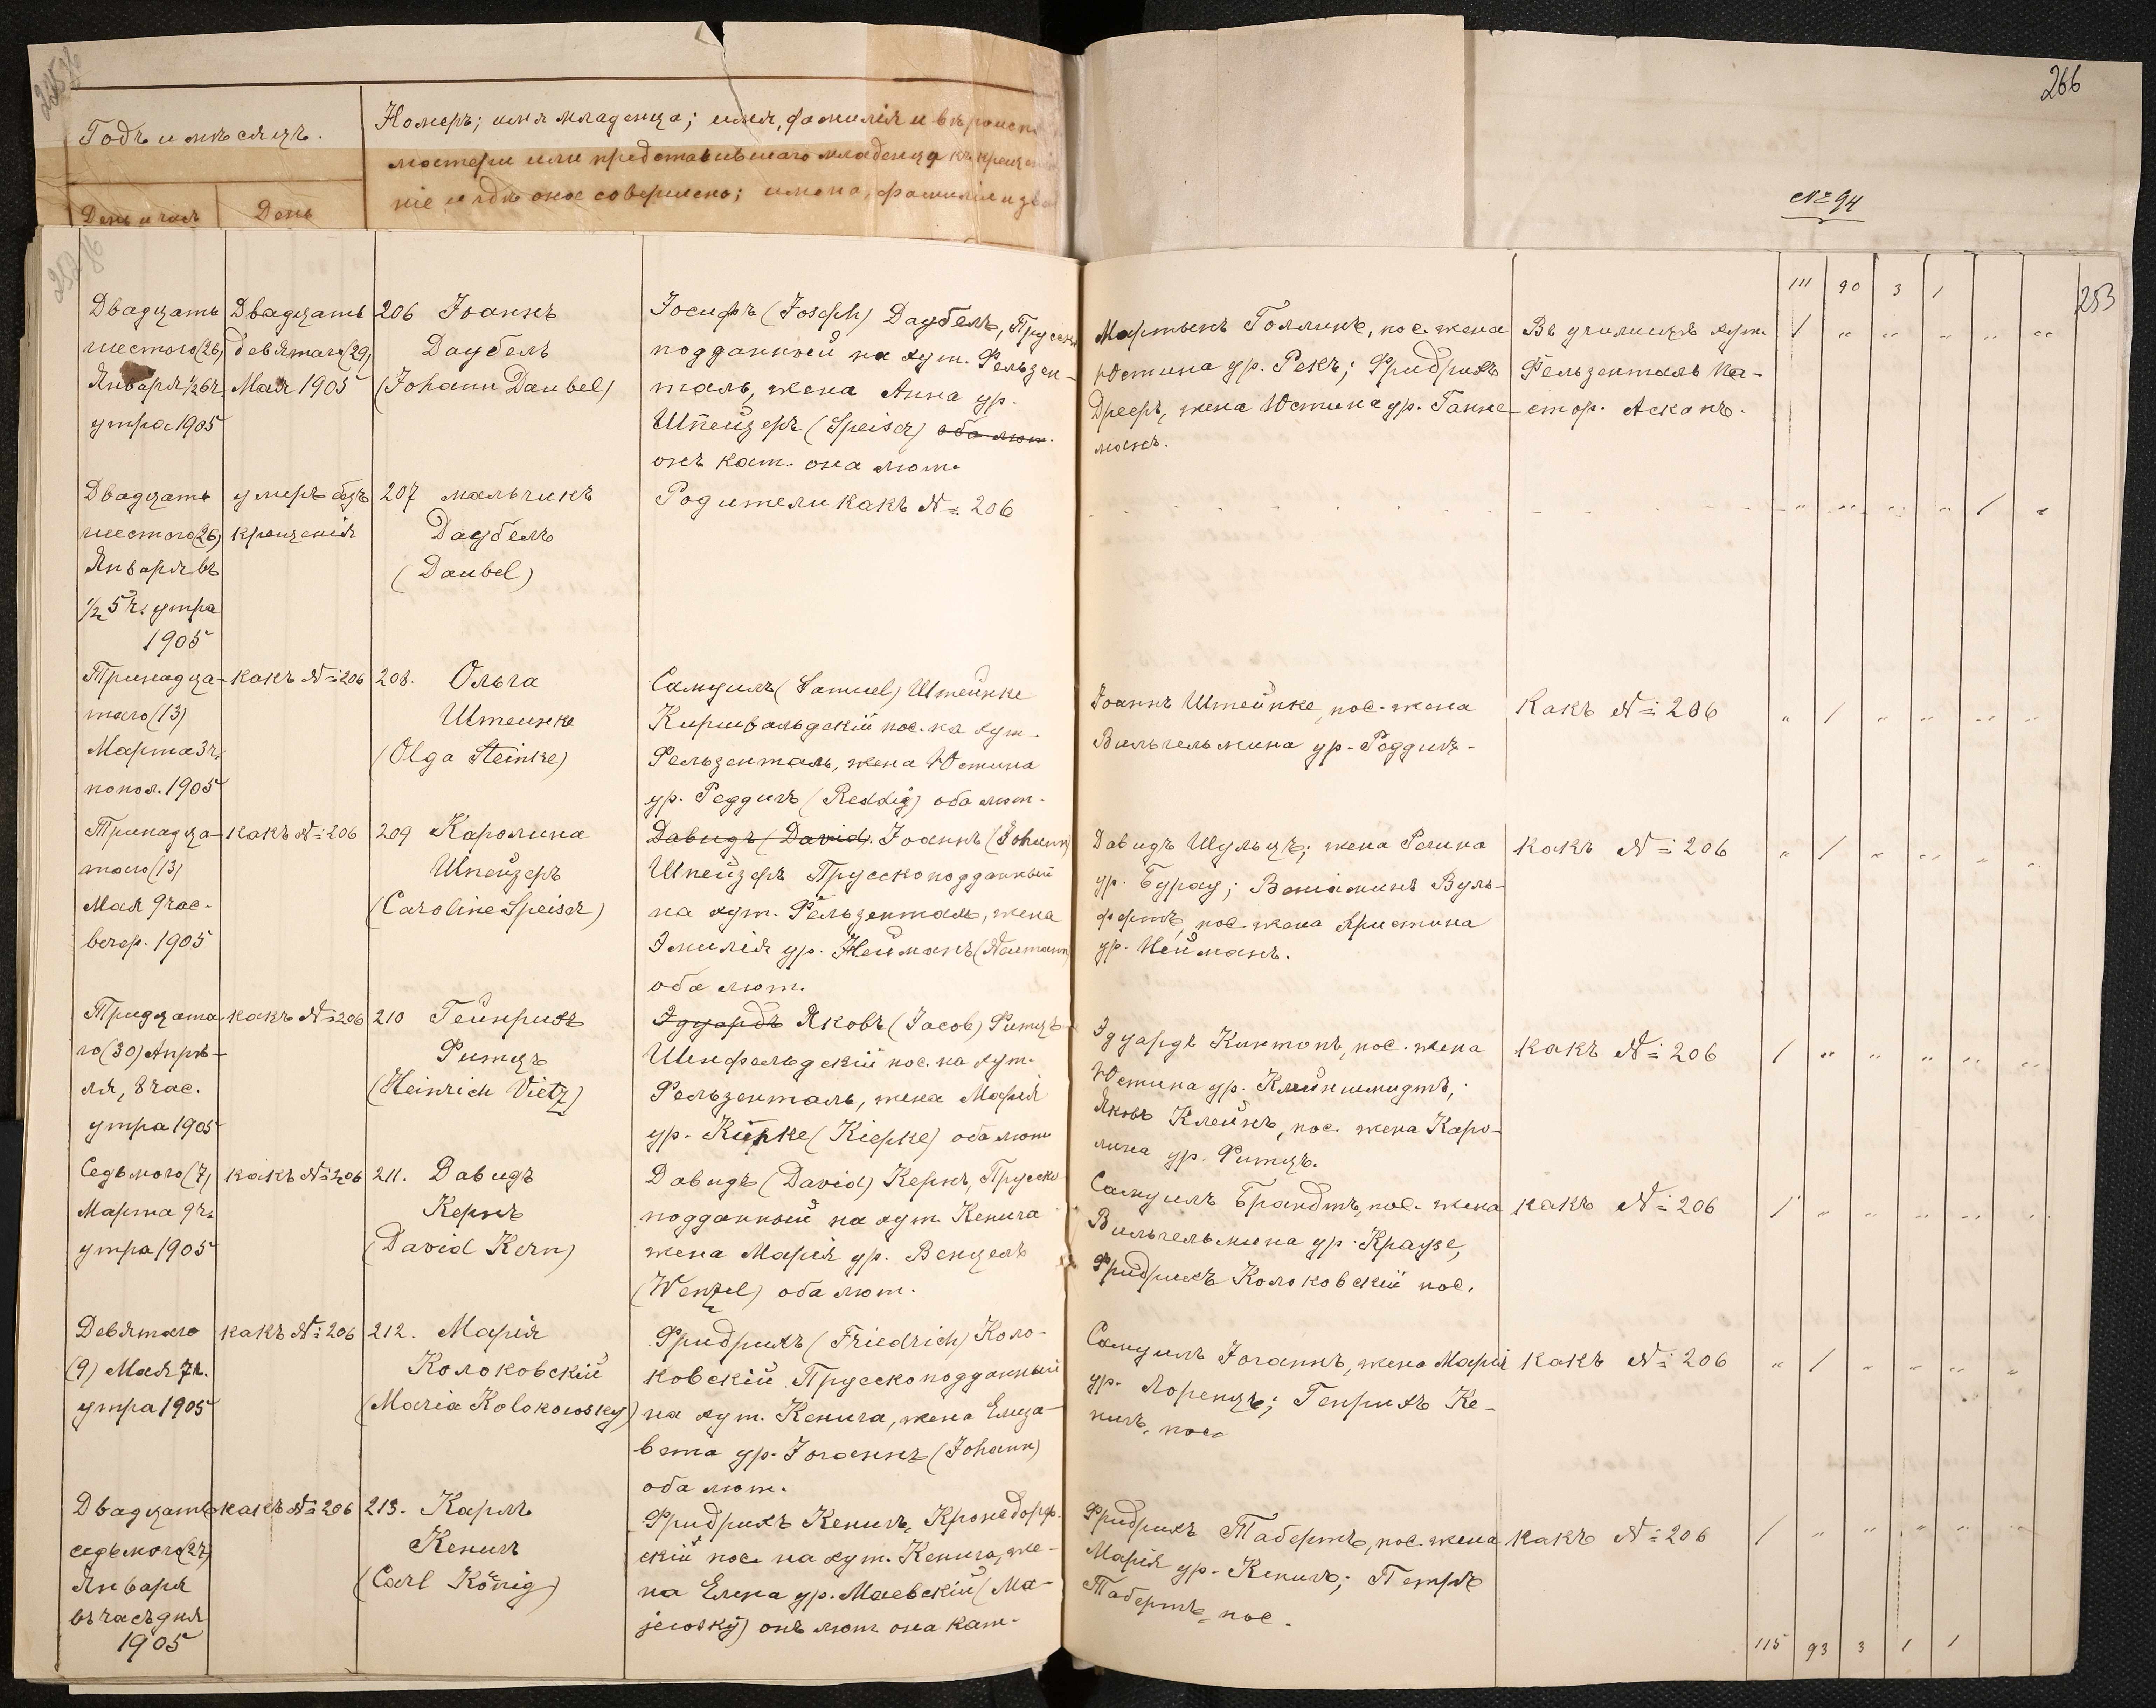 266
Годъ и мѣсяцъ.
Номеръ; имя младенца; имя, фамилія и вѣроисп
матери или представившаго младенца къ крещені
ніе, и гдѣ оное совершено; имена, фамиліи и зва
День и часъ
День
№ 94
111 90 3 1
253
Двадцать
шестого (26)
Января ½6 ч.
утра 1905
Двадцать
девятаго (29)
Мая 1905
206 Іоаннъ
Даубелъ
(Johann Daubel)
Іосифъ (Joseph) Даубелъ, Прусско
подданный на хут. Фельзен-
таль, жена Анна ур.
Шпейзеръ (Speiser) оба лют.
онъ кат. она лют.
Мартынъ Голлинъ, пос. жена
Юстина ур. Рекъ; Фридрихъ
Дреерь, жена Юстина ур. Ганне-
манъ.
Въ училищѣ хут.
Фельзенталь па-
стор. Асканъ.
1 " " " " "
Двадцать
шестого (26)
Января въ
½ 5 ч. утра
1905
умеръ безъ
крещенія
207 мальчикъ
Даубелъ
(Daubel)
Родители какъ № 206
" " " " 1 "
Тринадца-
таго (13)
Марта 3 ч.
попол. 1905
какъ № 206
208. Ольга
Штеинке
(Olga Steinke)
Самуилъ (Samuel) Штейнке
Киршвальдскій пос. на хут.
Фельзенталь, жена Юстина
ур. Реддигъ (Reddig) оба лют.
Іоаннъ Штейнке, пос. жена
Вильгельмина ур. Реддигъ-
Какъ № 206
" 1 " " " "
Тринадца-
таго (13)
Мая 9 час.
вечер. 1905
какъ № 206
209 Каролина
Шпейзеръ
(Caroline Speiser)
Давидъ (David) Іоаннъ (Johann)
Шпейзеръ Прусскоподданный
на хут. Фельзенталь, жена
Эмилія ур. Нейманъ (Naemann)
оба лют.
Давидъ Шульцъ; жена Регина
ур. Бурау; Веніаминъ Вуль-
фертъ, пос. жена Христина
ур. Нейманъ.
какъ № 206
" 1 " " " "
Тридцата-
го (30) Апрѣ-
ля, 8 час.
утра 1905
какъ № 206
210 Гейнрихъ
Фитцъ
(Heinrich Vietz)
Эдуардъ Яковъ (Jacob) Фитцъ
Шенфельдскій пос. на хут.
Фельзенталь, жена Марія
ур. Кипке (Kiepke) оба лют
Эдуардъ Кинтопъ, пос. жена
Юстина ур. Клейншмидтъ;
Яковъ Клейнъ, пос. жена Каро-
лина ур. Фитцъ.
какъ № 206
1 " " " " "
Седьмого (7)
Марта 9 ч.
утра 1905
какъ № 206
211. Давидъ
Кернъ
(David Kern)
Давидъ (David) Кернъ, Прусско
подданный на хут Кенига
жена Марія ур. Венцель
(Wenzel) оба лют.
Самуилъ Брандтъ, пос. жена
Вильгельмина ур. Краузе,
Фридрихъ Колоковскій пос.
какъ № 206
1 " " " " "
Девятаго
(9) Мая 7 ч.
утра 1905
какъ № 206
212. Марія
Колоковскій
(Maria Kolokowsky)
Фридрихъ (Friedrich) Коло-
ковскій Прусскоподданный
на хут. Кенига, жена Елиза-
вета ур. Іоганнъ (Johann)
оба лют.
Самуилъ Іоганнъ, жена Марія
ур. Лоренцъ; Генрихъ Ке-
нигъ, пос.
какъ № 206
" 1 " " " "
Двадцать
седьмого (27)
Января
въ часъ дня
1905
какъ № 206
213. Карлъ
Кениг
(Carl König)
Фридрихъ Кенигъ, Кронсдорф-
скій пос. на хут. Кенига, же-
на Елена ур. Маевскій (Ma-
jewsky) онъ лют она кат.
Фридрихъ Табертъ, пос. жена
Марія ур. Кенигъ; Петръ
Табертъ, пос.
какъ № 206
1 " " " " "
115 93 3 1 1